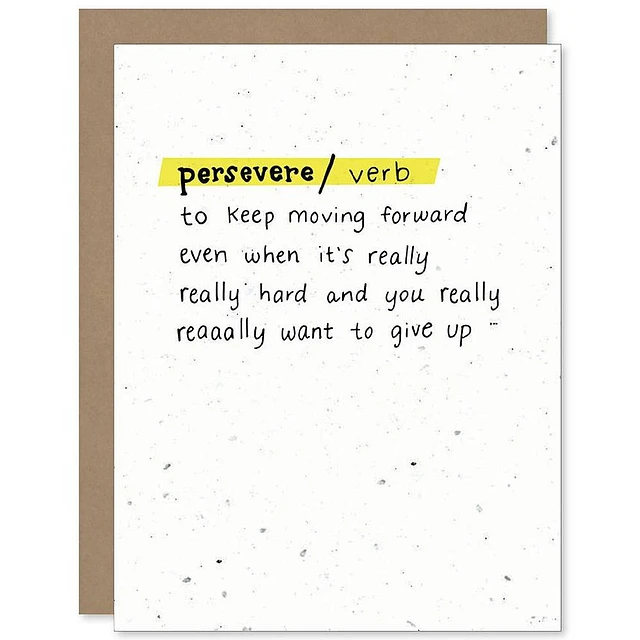 persevere/ verb
to keep moving forward
even when it's really
really hard and you really
reaaally want to give up ...